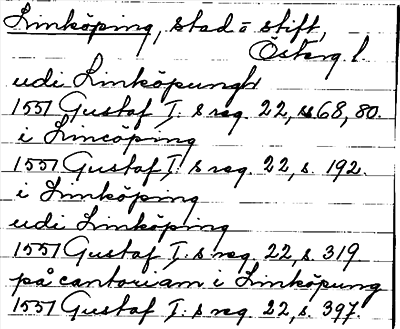 Linköping, stad o stift,
Österg l.
udi Linköpungh
1551 Gustaf I. s reg. 22, ss 68, 80.
i Lincöping
1551 Gustaf I. s reg. 22, s. 192.
i Linköping
udi Linköping
1551 Gustaf I. s reg. 22, s. 319
på cantoriam i Linköpung
1551 Gustaf I. s reg. 22, s. 397.